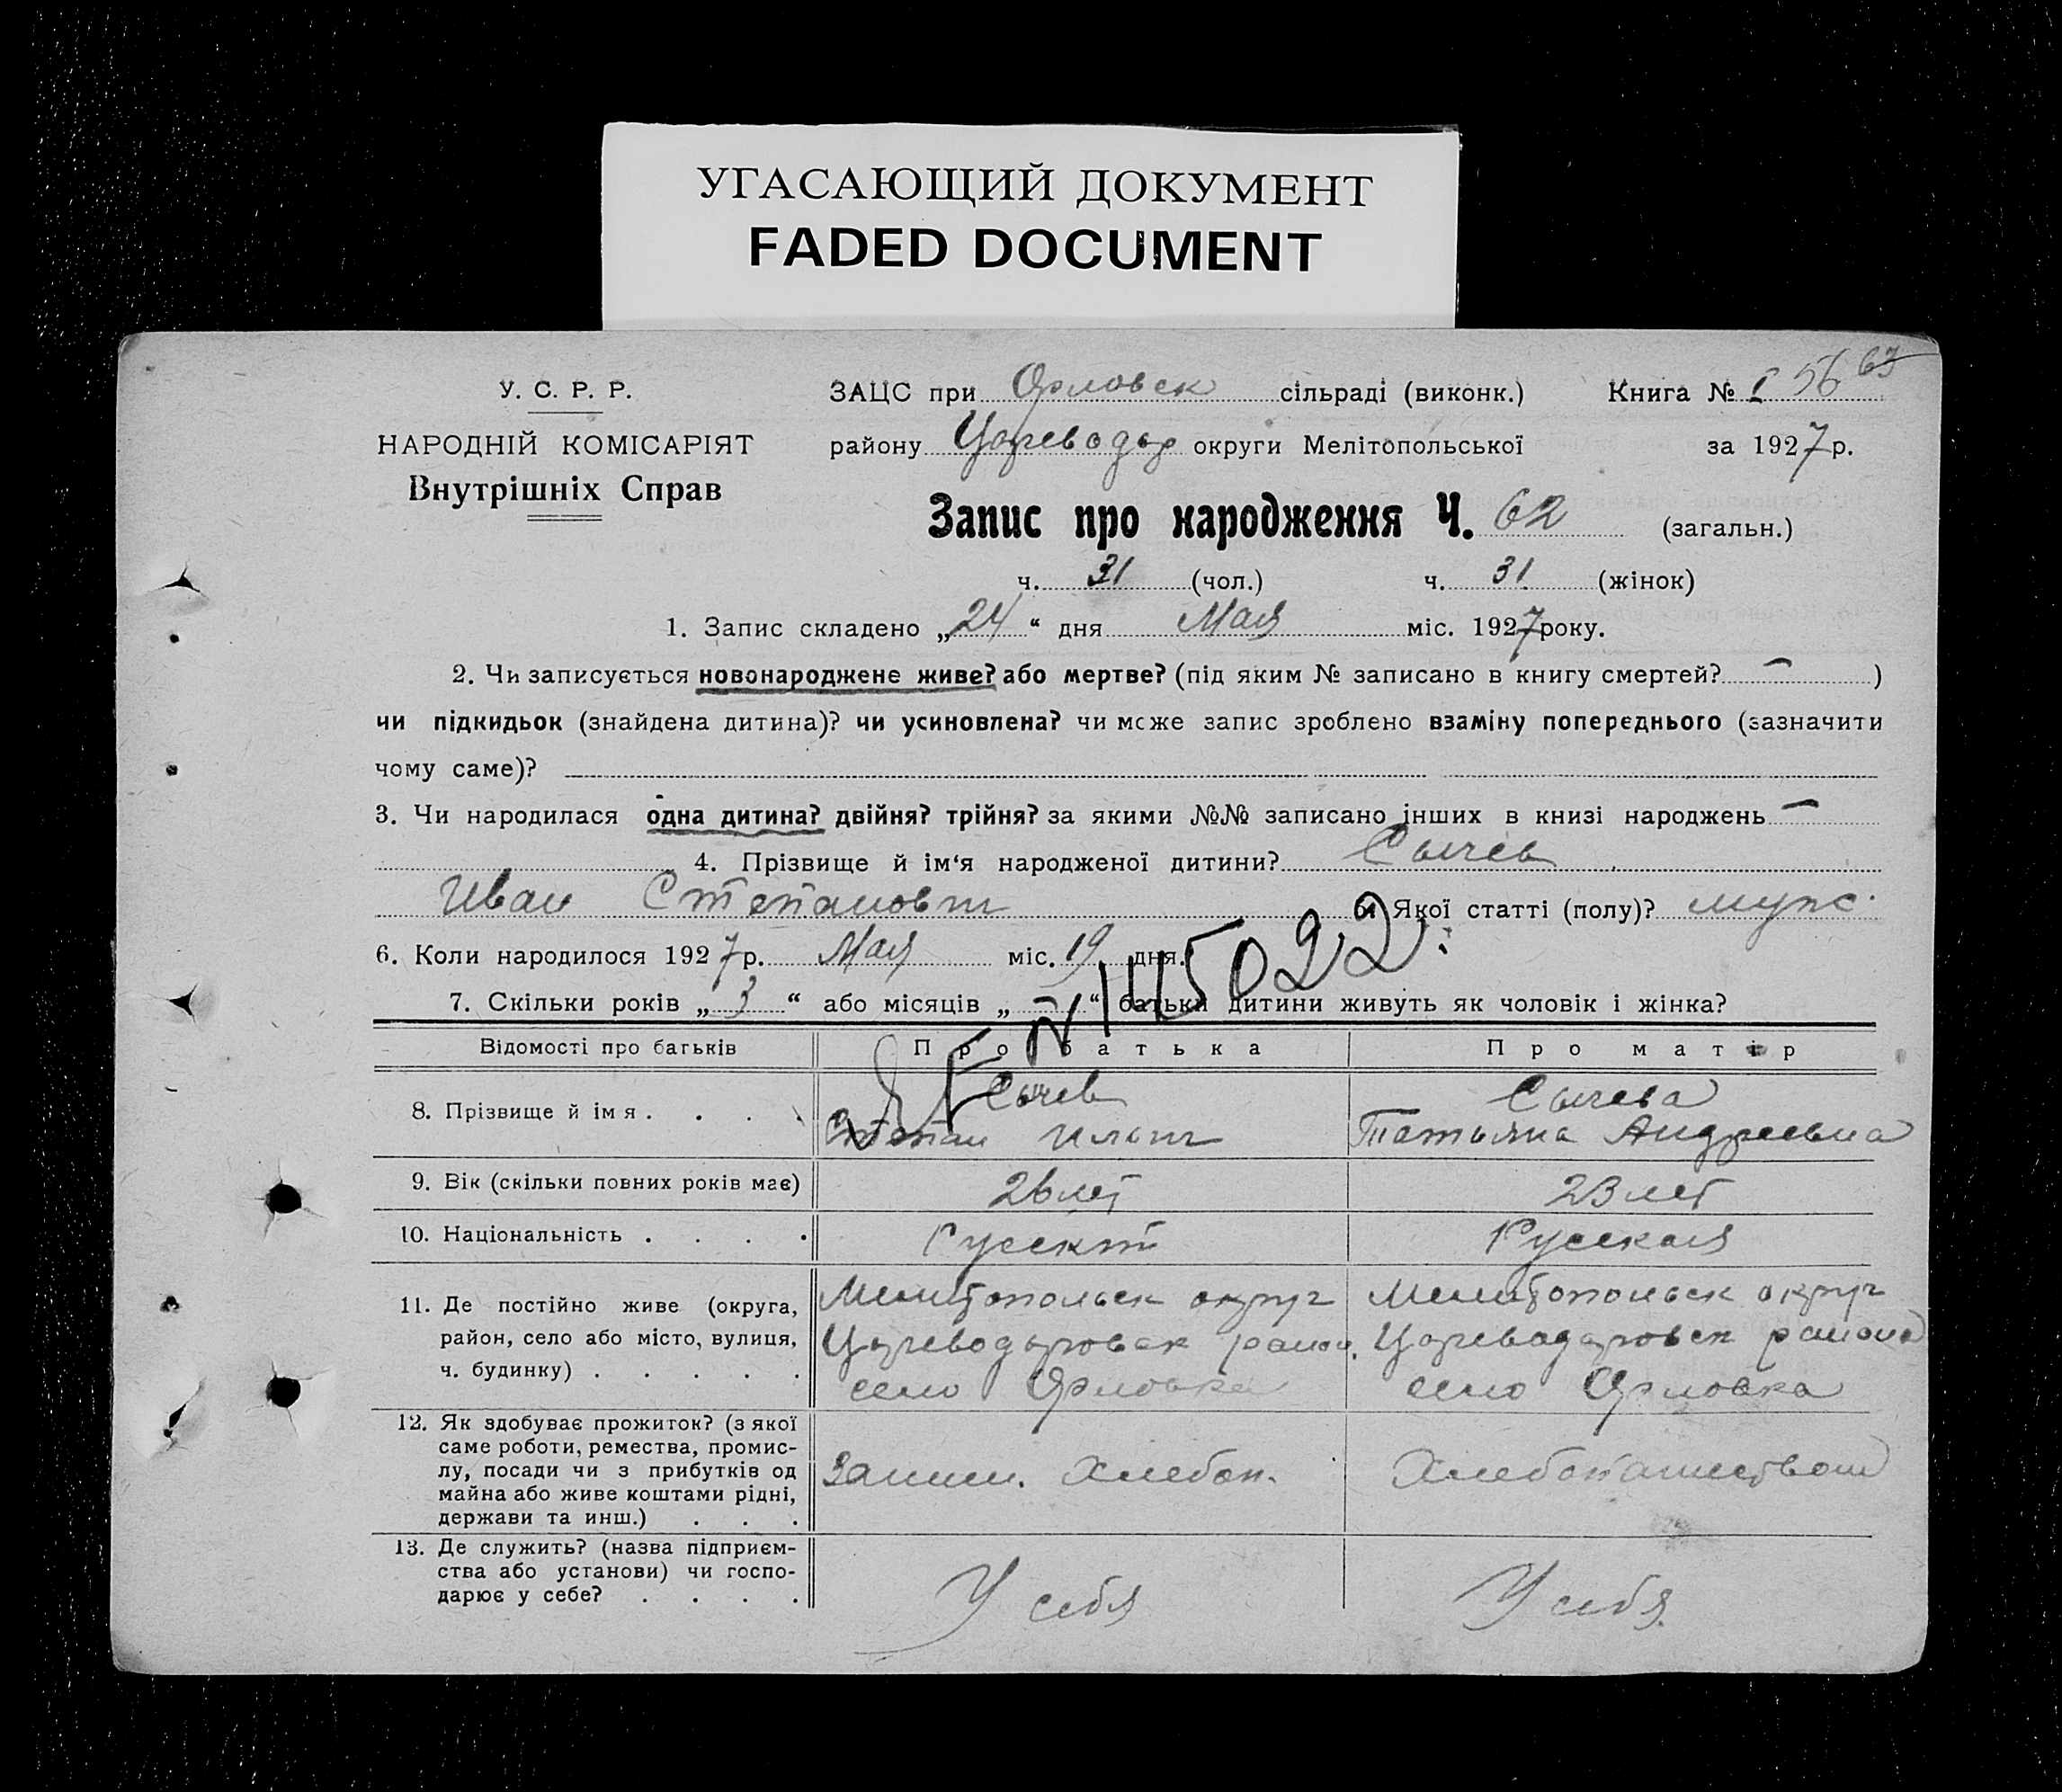 УГАСАЮЩИЙ ДОКУМЕНТ
FADED DOCUMENT
У. С. Р. Р.
НАРОДНІЙ КОМІСАРІЯТ
Внутрішніх Справ
ЗАЦС при Орловск сільраді (виконк.) Книга № I 56 63
району Цареводар округи Мелітопольської за 1927 р.
Запис про народження Ч. 62 (загальн.)
ч. 31 (чол.) ч. 31 (жінок)
1. Запис складено „24“ дня Мая міс. 1927 року.
2. Чи записується новонароджене живе? або мертве? (під яким № записано в книгу смертей? — )
чи підкидьок (знайдена дитина)? чи усиновлена? чи може запис зроблено взаміну попереднього (зазначити
чому саме)?
3. Чи народилася одна дитина? двійня? трійня? за якими №№ записано інших в книзі народжень —
4. Прізвище й ім‘я народженої дитини? Сычев
Иван Степанович 5. Якої статті (полу)? муж.
6. Коли народилося 1927 р. Мая міс. 19 дня.
7. Скільки років „3“ або місяців „—“ батьки дитини живуть як чоловік і жінка?
№ 1145022.
Відомості про батьків Про батька Про матір
8. Прізвище й імя . . . . Сычев Сычева
Степан Ильич Татьяна Андреевна
9. Вік (скільки повних років має) 26 лет 23 лет
10. Національність . . . . Русский Русская
11. Де постійно живе (округа, Мелитопольск округ Мелитопольск округ
район, село або місто, вулиця, Цареводаровск район. Цареводаровск района
ч. будинку) . . . . . село Орловка село Орловка
12. Як здобуває прожиток? (з якої
саме роботи, ремества, промис-
лу, посади чи з прибутків од Заним. Хлебоп. Хлебопашеством
майна або живе коштами рідні,
держави та инш.) . . .
13. Де служить? (назва підприєм-
ства або установи) чи госпо- У себя У себя
дарює у себе? . . . .